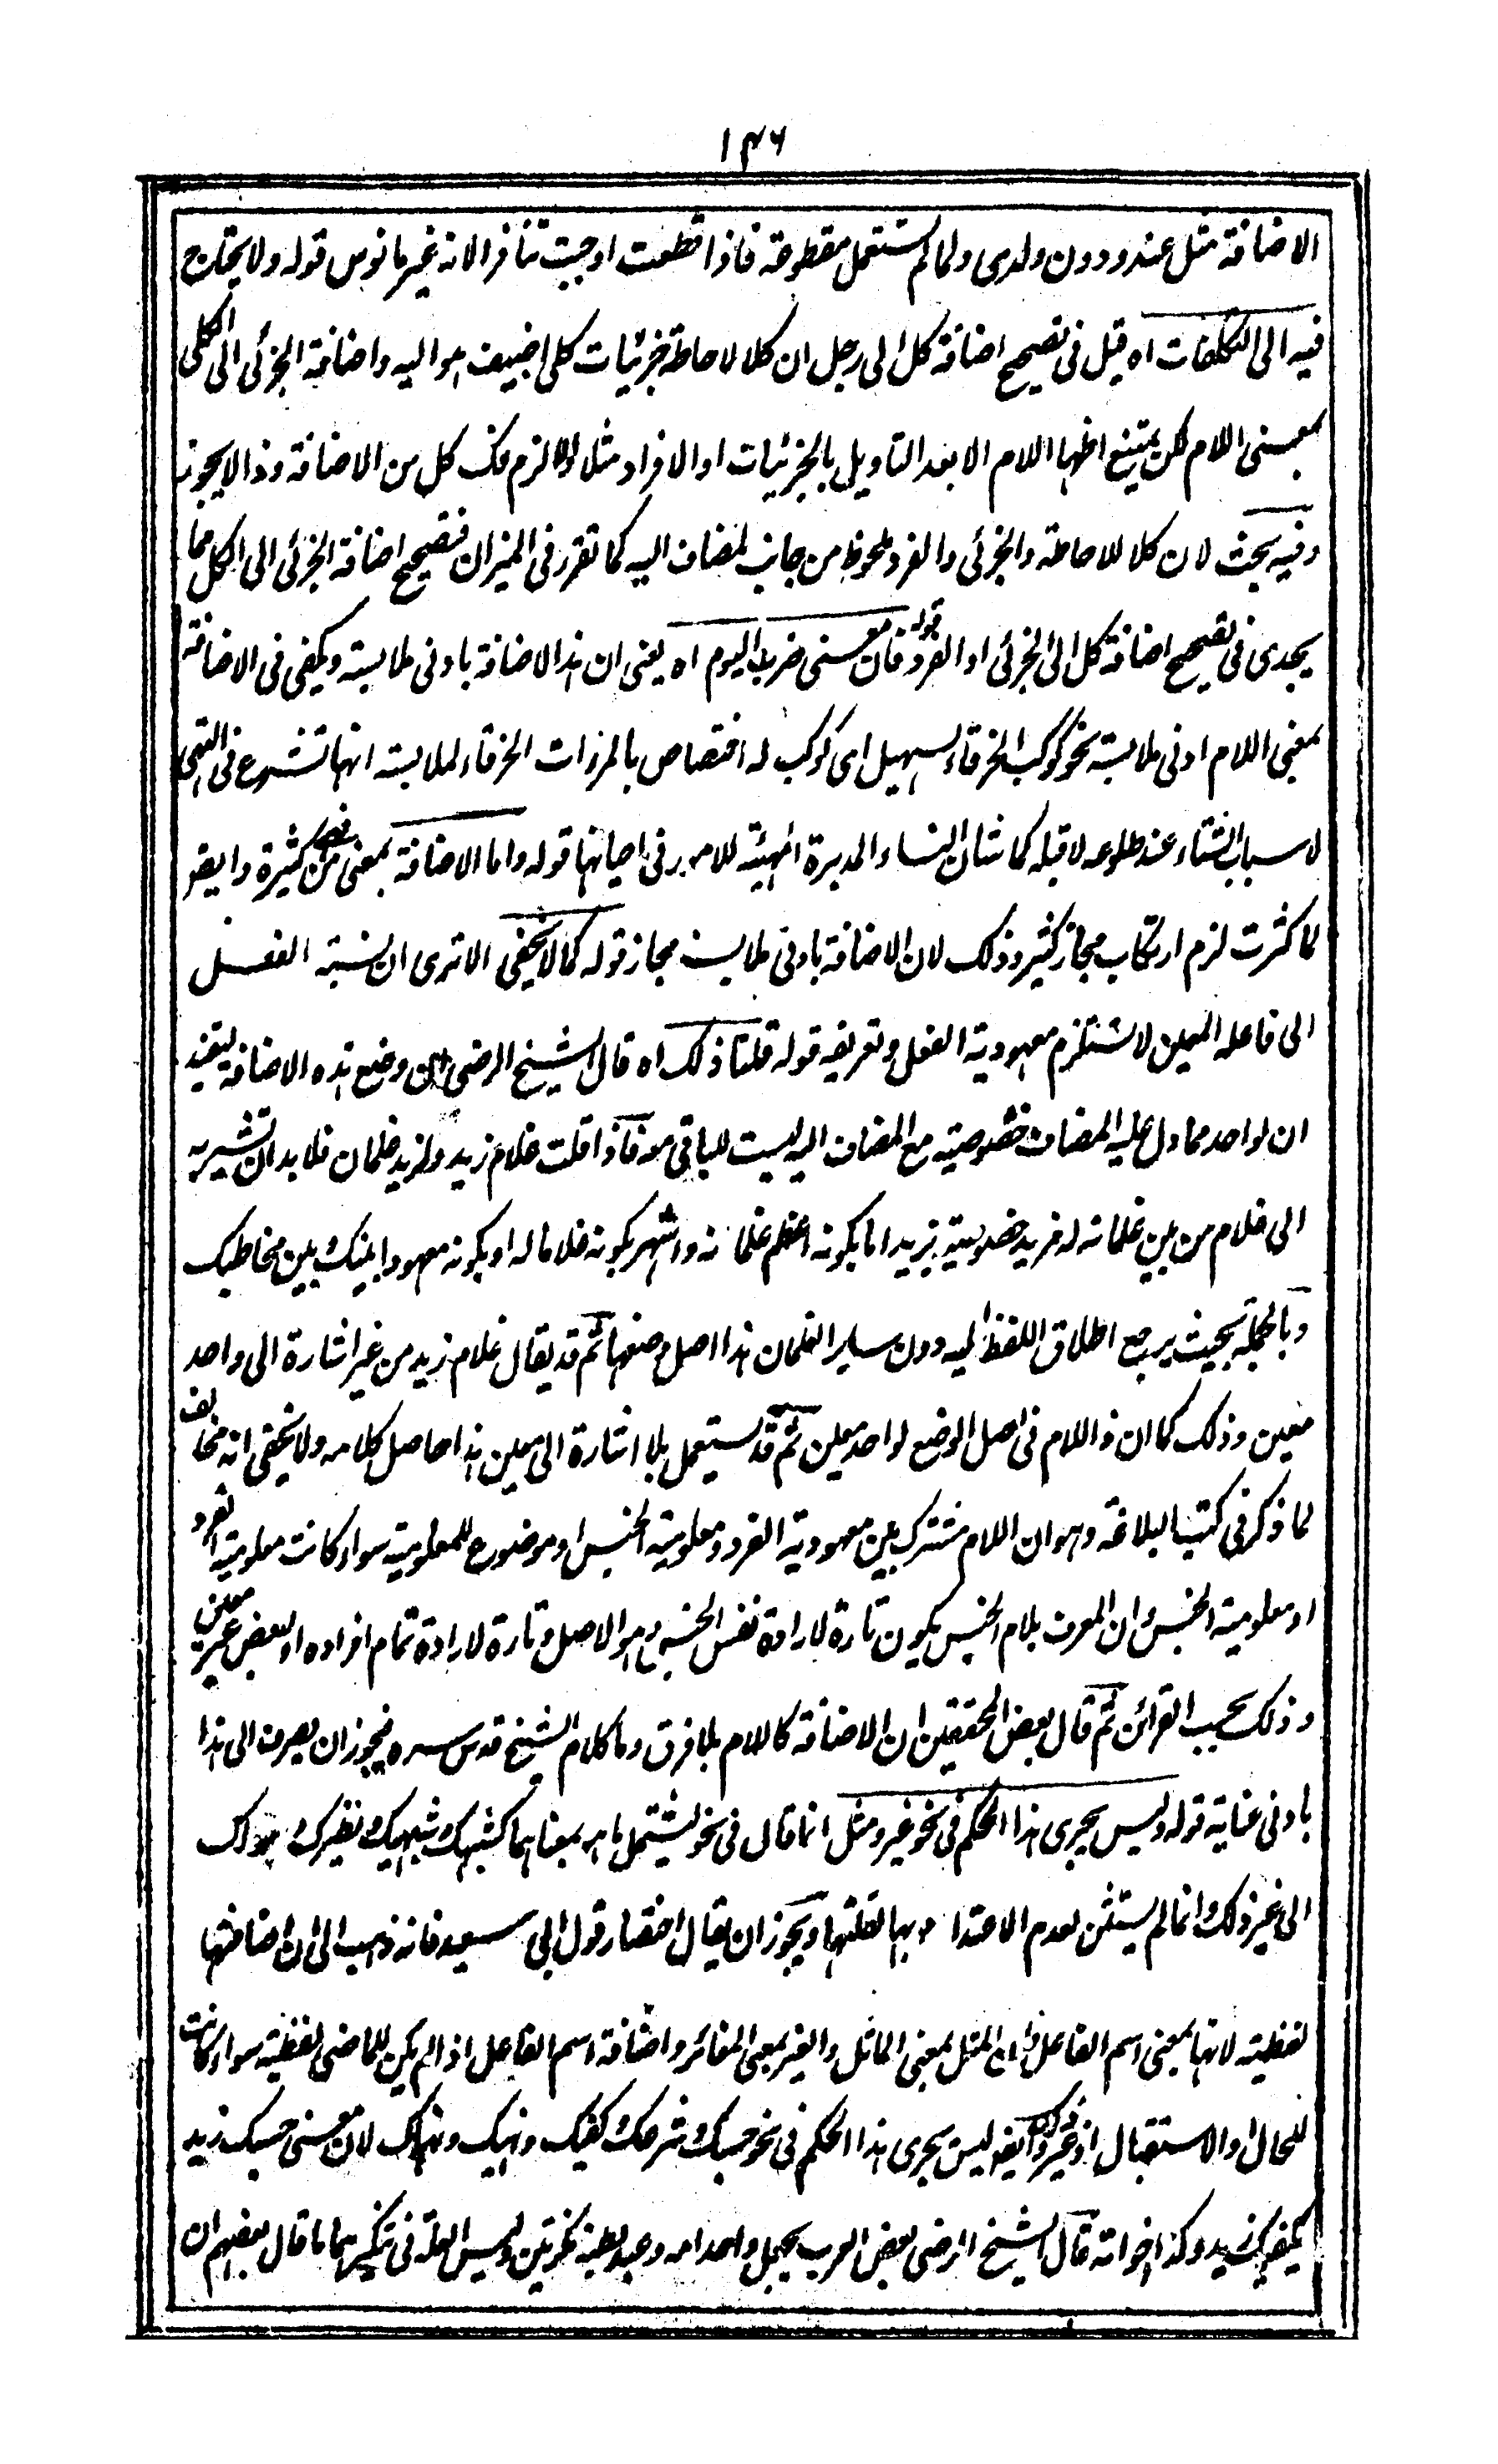 ۱۴۶
الاضافة مثل عند ودون ولدى ولما لم تستعمل مقطوعة فاذا قطعت اوجبت تنافرا لانه غير مانوس قوله ولا يحتاج
فيه الى التكلفات اه قيل فى تصحيح اضافة كل الى رجل ان كلا لاحاطة جزئيات كلى اضيف هو اليه واضافة الجزئى الى الكلى
بمعنى اللام لكن يمتنع اظهار اللام الا بعد التاويل بالجزئيات او الافراد مثلا والا لزم فك كل من الاضافة وذا لا يجوز
وفيه بحث لان كلا للاحاطة والجزئى والفرد ملحوظ من جانب المضاف اليه كما تقرر فى الميزان فتصحيح اضافة الجزئى الى الكل مما
يجدى فى تصحيح اضافة كل الى الجزئى او الفرد قوله فان معنى ضرب اليوم اه يعنى ان هذا الاضافة بادنى ملابسة ويكفى فى الاضافة
بمعنى اللام ادنى ملابسة نحو كوكب الخرقاء لسهيل اى كوكب له اختصاص بالمرأة الخرقاء لملابسة انها تشرع فى التهيئ
لاسباب الشتاء عند طلوعه لا قبله كما شان النساء المدبرة المهيئة للامور فى احيانها قوله واما الاضافة بمعنى من فهى كثيرة وايضا
لما كثرت لزم ارتكاب مجاز كثير وذلك لان الاضافة بادنى ملابسة مجاز قوله كما لا يخفى الا ترى ان نسبة الفعل
الى فاعله المعين لا تستلزم معهودية الفعل وتعريفه قوله قلنا ذلك اه قال الشيخ الرضى ان وضع هذه الاضافة ليفيد
ان لواحد مما دل عليه المضاف خصوصية مع المضاف اليه ليست للباقى معه فاذا قلت غلام زيد ولزيد غلمان فلا بد ان تشير به
الى غلام من بين غلمانه له مزيد خصوصية بزيد اما بكونه اعظم غلمانه واشهر بكونه غلاما له او بكونه معهودا بينك وبين مخاطبك
وبالجملة بحيث يرجع اطلاق اللفظ اليه دون سائر الغلمان هذا اصل وضعها ثم قد يقال غلام زيد من غير اشارة الى واحد
معين وذلك كما ان ذا اللام فى اصل الوضع لواحد معين ثم قد يستعمل بلا اشارة الى معين هذا حاصل كلامه ولا يخفى انه مخالف
لما ذكر فى كتب البلاغة وهو ان اللام مشترك بين معهودية الفرد ومعلومية الجنس او موضوع للمعلومية سواء كانت معلومية الفرد
او معلومية الجنس وان المعرف بلام الجنس يكون تارة لارادة نفس الجنس وهو الاصل وتارة لارادة تمام افراده او لبعض غير معين
وذلك بحسب القرائن ثم قال بعض المحققين ان الاضافة كاللام بلا فرق وما كلام الشيخ قدس سره فيجوز ان يصرف الى هذا
بادنى عناية قوله وليس يجرى هذا الحكم فى نحو غير ومثل انما قال فى نحو ليشتمل ما هو بمعناهما كشبهك وشبيهك ونظيرك وسواك
الى غير ذلك وانما لم يستثن لعدم الاعتداد بها لقلتها ويجوز ان يقال اختار قول ابى سعيد فانه ذهب الى ان اضافتها
لفظية لانها بمعنى اسم الفاعل اذ المثل بمعنى المماثل والغير بمعنى المغائر واضافة اسم الفاعل اذا لم يكن للماضى لفظية سواء كانت
للحال او الاستقبال او غيره قوله وايضا ليس يجرى هذا الحكم فى نحو حسبك وشرعك وكفيك ونهيك ونهاك لان معنى حسبك زيد
يكفيك زيد وكذا اخواته قال الشيخ الرضى بعض العرب يجعل واحد امه وعبد بطنه نكرتين وليس العلة فى تنكيرهما ما قال بعضهم ان